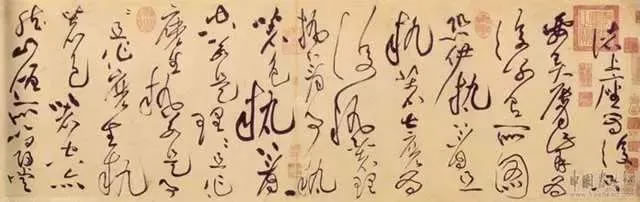 諸上座為復只
要
復別有所圖
恐伊執著且
執著甚麼為
復執著理
執著事執
著色執著
空若是理理且作
麼生執若是事
事且作麼生執
著色著空亦
然山僧所以尋常